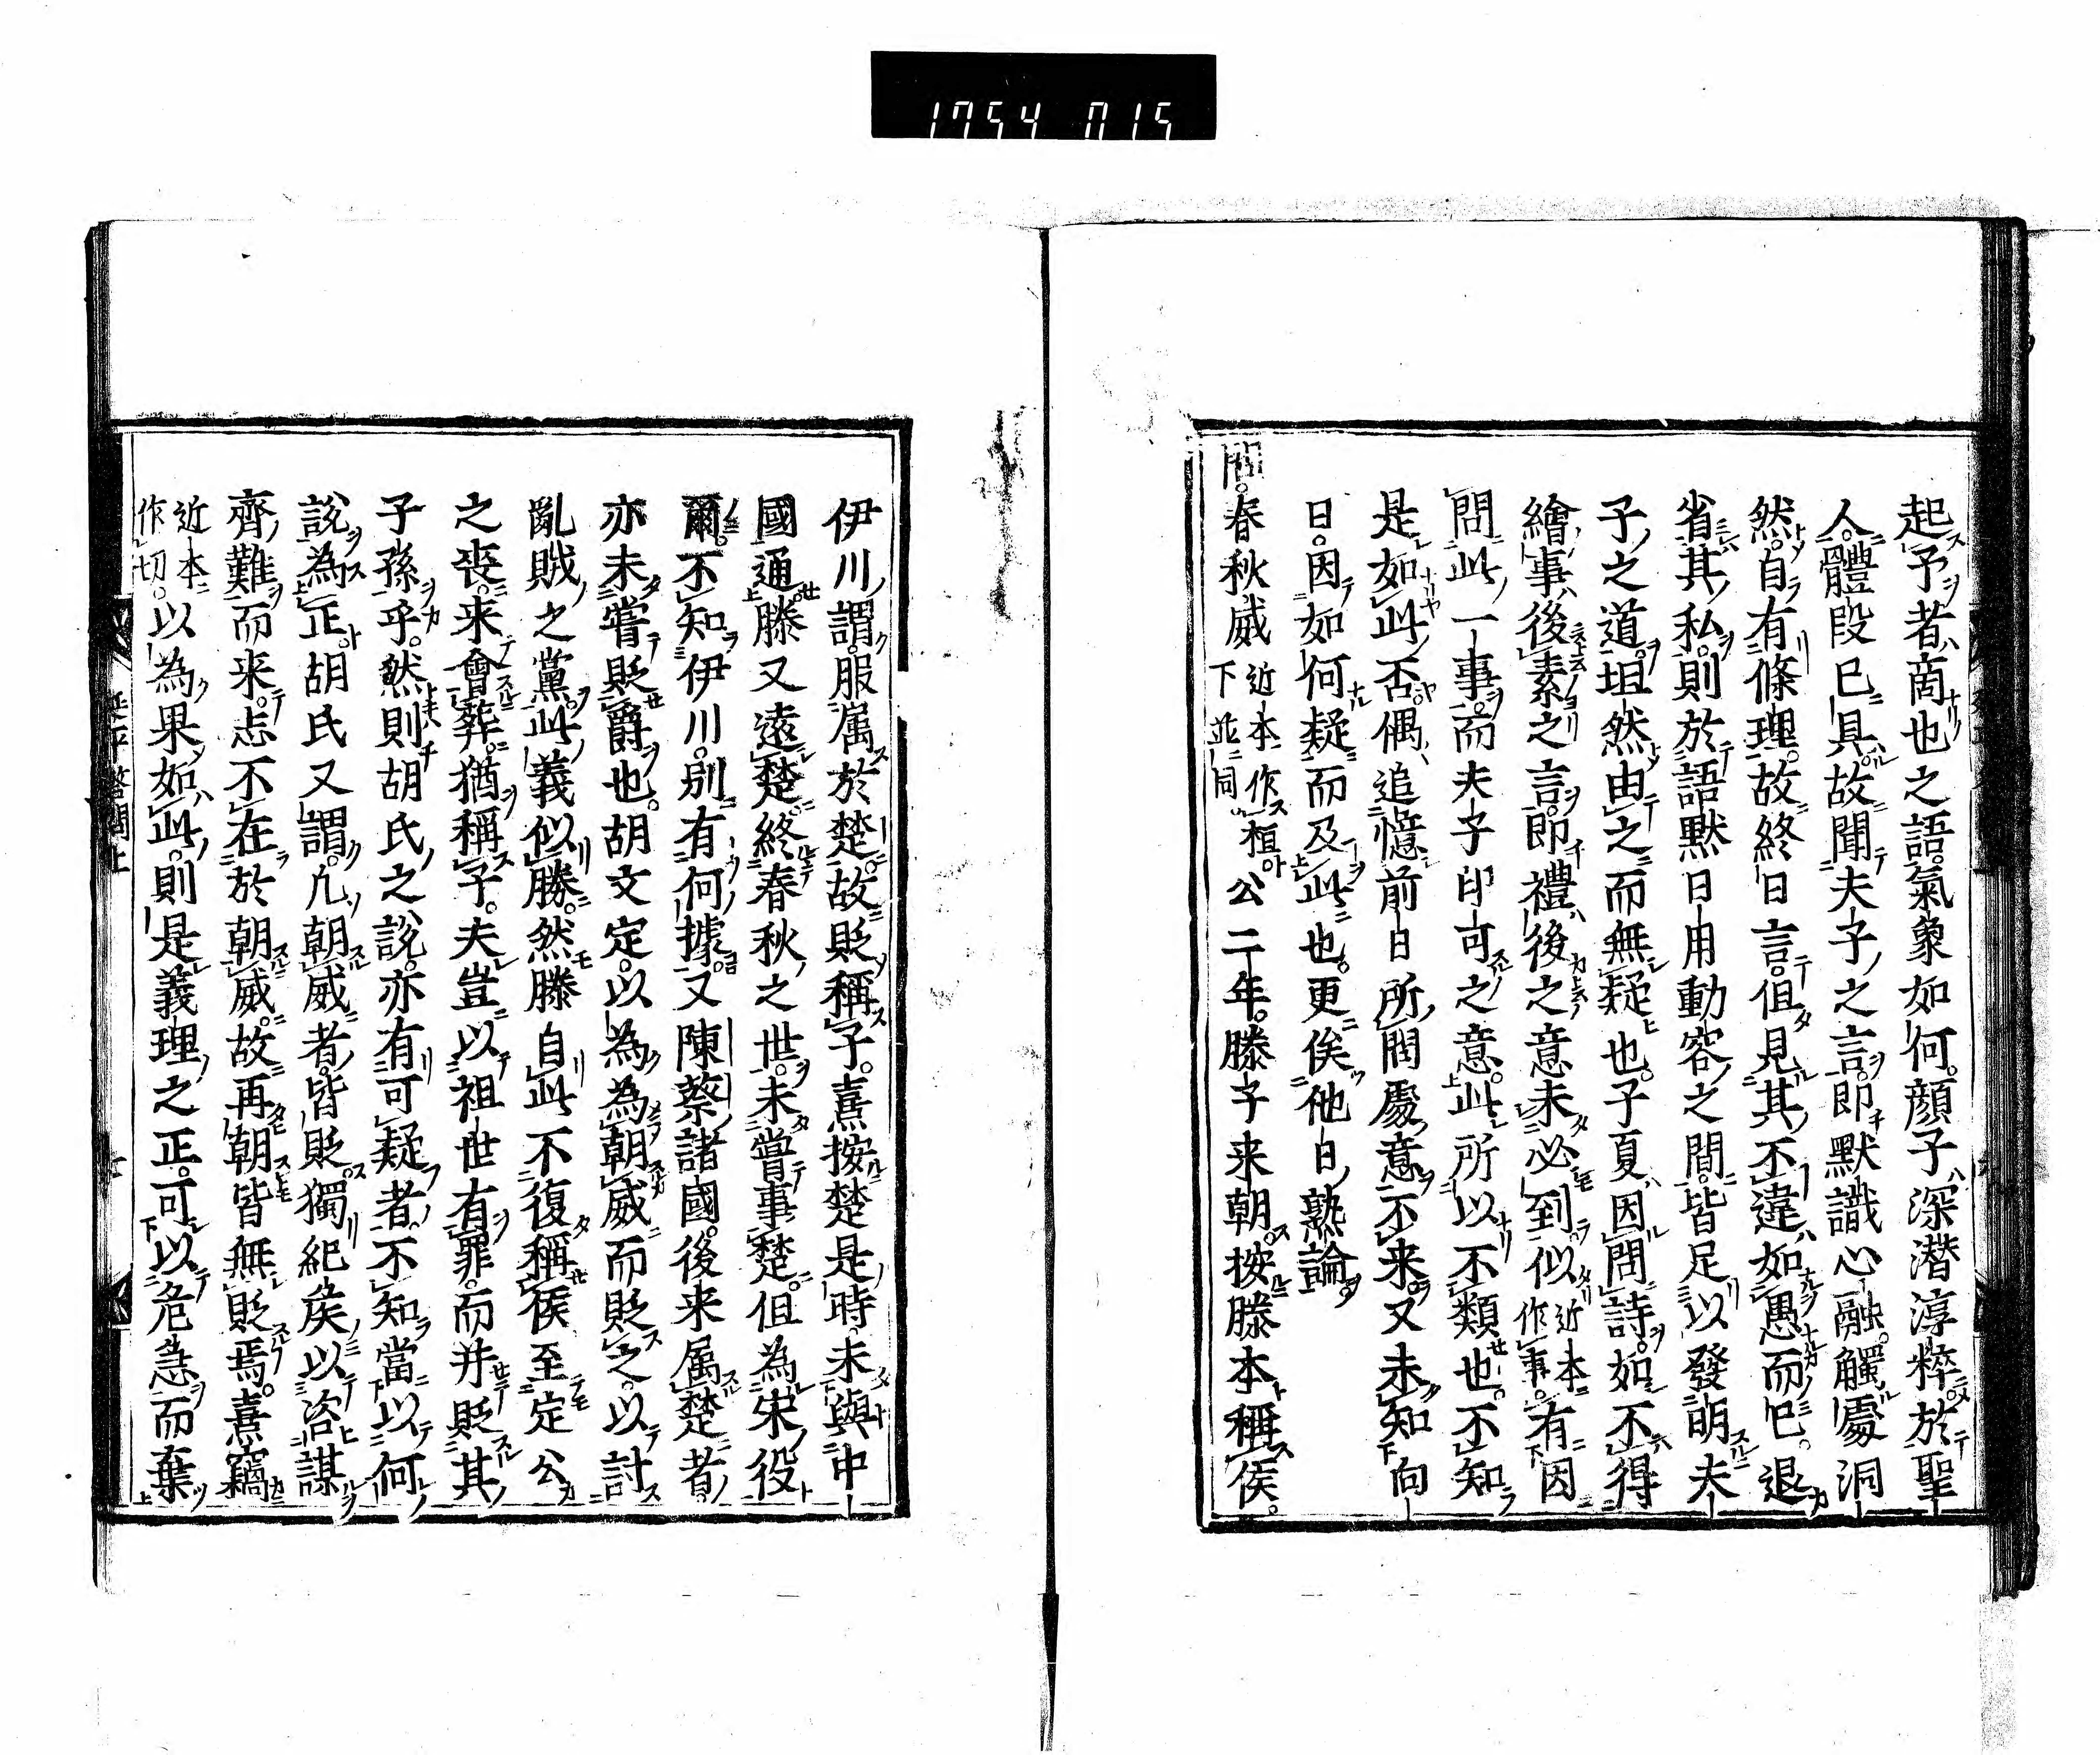 1754 015
起予者商也之語氣象如何顔子深潛淳粹於聖
人體段已具故聞夫子之言即默識心融觸處洞
然自有條理故終日言但見其不違如愚而已退
省其私則於語默日用動容之間皆足以發明夫
子之道坦然由之而無疑也子夏因問詩如不得
繪事後素之言即禮後之意未必到似近本作事有因
問此一事而夫子印可之意此所以不類也不知
是如此否偶追憶前日所問處意不来又未知向
日因如何疑而及此也更俟他日熟論
問春秋威近本作桓下並同公二年滕子来朝按滕本稱侯
伊川謂服屬於楚故貶稱子熹按楚是時未與中
國通滕又遠楚終春秋之世未嘗事楚但為宋役
爾不知伊川別有何據又陳蔡諸國後来属楚者
亦未嘗貶爵也胡文定以為為朝威而貶之以討
亂賊之黨此義似勝然滕自此不復稱侯至定公
之喪来會葬猶稱子夫豈以祖世有罪而并貶其
子孫乎然則胡氏之說亦有可疑者不知當以何
說為正胡氏又謂凢朝威者皆貶獨紀侯以咨謀
齊難而来志不在於朝威故再朝皆無貶焉熹竊
近本作切以為果如此則是義理之正可以危急而棄
延平答問上